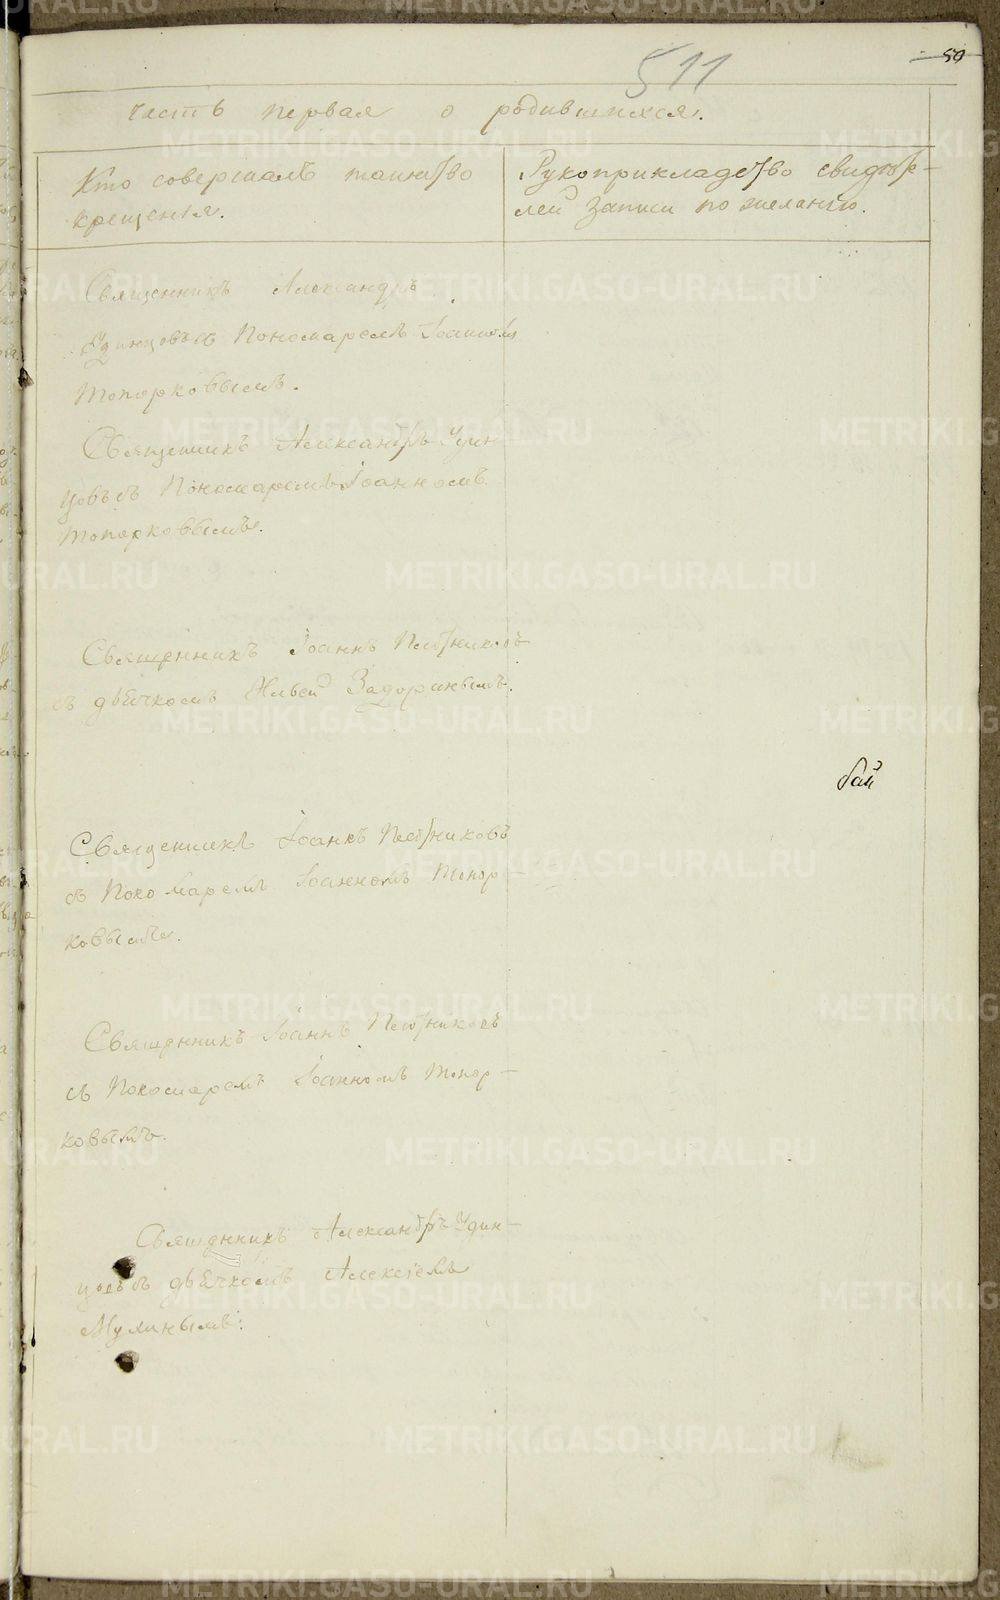 511
50
часть первая о родившихся.
Кто совершалъ таинство
крещенія.
Рукоприкладство свидѣте-
лей записи по желанію.
Священникъ Александръ
Удинцовъ съ Пономаремъ Іоанномъ
Топорковымъ.
Священникъ Александръ Удин
цовъ съ Пономаремъ Іоанномъ
Топорковымъ.
Священникъ Іоаннъ Пестряковъ
съ дьячкомъ Ильей Задоринымъ.
Священникъ Іоаннъ Пестряковъ
съ Пономаремъ Іоанномъ Топор-
ковымъ.
Священникъ Іоаннъ Пестряковъ
съ Пономаремъ Іоанномъ Топор-
ковымъ.
Священникъ Александръ Удин-
цовъ съ дьячкомъ Алексѣемъ
Мулинымъ.
METRIKI.GASO-URAL.RU